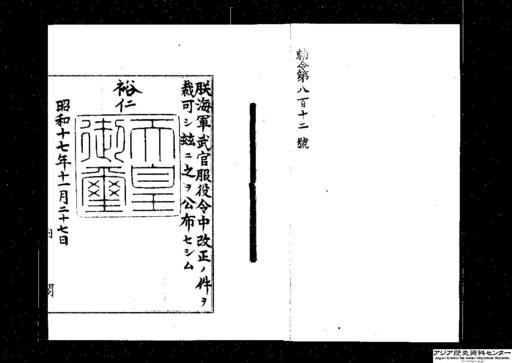 勅令第八百十二號
朕海軍武官服役令中改正ノ件ヲ
裁可シ玆ニ之ヲ公布セシム
裕仁
天皇御璽
昭和十七年十一月二十七日
内閣
アジア歴史資料センター
Japan Center for Asian Historical Records